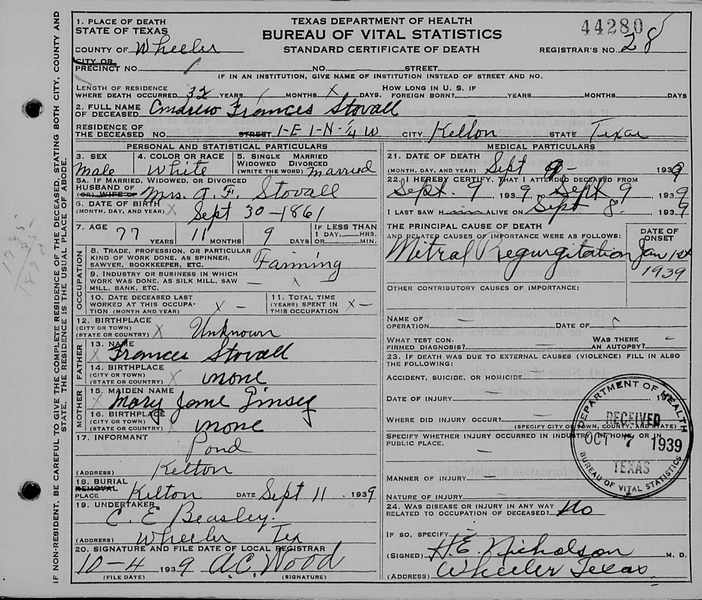 TEXAS DEPARTMENT OF HEALTH
BUREAU OF VITAL STATISTICS
STANDARD CERTIFICATE OF DEATH
44280
REGISTRAR'S NO. 28
1. PLACE OF DEATH
STATE OF TEXAS
COUNTY OF Wheeler
CITY OR
PRECINCT NO. 1 NO. STREET
IF IN AN INSTITUTION, GIVE NAME OF INSTITUTION INSTEAD OF STREET AND NO.
LENGTH OF RESIDENCE
WHERE DEATH OCCURRED 32 YEARS, MONTHS X DAYS. HOW LONG IN U. S. IF FOREIGN BORN? YEARS MONTHS DAYS.
2. FULL NAME OF DECEASED Andrew Frances Stovall
RESIDENCE OF THE DECEASED NO. STREET 1-E 1-N-¼ W CITY Kelton STATE Texas
PERSONAL AND STATISTICAL PARTICULARS
3. SEX Male
4. COLOR OR RACE White
5. SINGLE MARRIED WIDOWED DIVORCED (WRITE THE WORD) Married
5A. IF MARRIED, WIDOWED, OR DIVORCED
HUSBAND OF (OR) WIFE OF Mrs. A. F. Stovall
6. DATE OF BIRTH (MONTH, DAY, AND YEAR) X Sept 30-1861
7. AGE 77 YEARS 11 MONTHS 9 DAYS IF LESS THAN 1 DAY, HRS. MIN.
OCCUPATION
8. TRADE, PROFESSION, OR PARTICULAR KIND OF WORK DONE, AS SPINNER, SAWYER, BOOKKEEPER, ETC. Farming
9. INDUSTRY OR BUSINESS IN WHICH WORK WAS DONE, AS SILK MILL, SAW MILL, BANK, ETC. - x
10. DATE DECEASED LAST WORKED AT THIS OCCUPATION (MONTH AND YEAR) x -
11. TOTAL TIME (YEARS) SPENT IN THIS OCCUPATION X-
12. BIRTHPLACE (CITY OR TOWN) (STATE OR COUNTRY) X Unknown
FATHER
13. NAME Frances Stovall
14. BIRTHPLACE (CITY OR TOWN) (STATE OR COUNTRY) X none
MOTHER
15. MAIDEN NAME Mary Jane
16. BIRTHPLACE (CITY OR TOWN) (STATE OR COUNTRY) X none
17. INFORMANT Pond
(ADDRESS) Kelton
18. BURIAL REMOVAL
PLACE Kelton DATE Sept 11 1939
19. UNDERTAKER C. E. Beasley
(ADDRESS) Wheeler Tex
20. SIGNATURE AND FILE DATE OF LOCAL REGISTRAR
10-4 1939 A.C. Wood
(FILE DATE) (SIGNATURE)
MEDICAL PARTICULARS
21. DATE OF DEATH (MONTH, DAY, AND YEAR) Sept 9- 1939
22. I HEREBY CERTIFY, THAT I ATTENDED DECEASED FROM
Sept. 9 1939 Sept 9 1939
I LAST SAW H ALIVE ON Sept 8. 1939
THE PRINCIPAL CAUSE OF DEATH AND RELATED CAUSES OF IMPORTANCE WERE AS FOLLOWS:
DATE OF ONSET
Mitral Regurgitation Jan 1st 1939
OTHER CONTRIBUTORY CAUSES OF IMPORTANCE:
NAME OF OPERATION DATE OF
WHAT TEST CONFIRMED DIAGNOSIS? WAS THERE AN AUTOPSY?
23. IF DEATH WAS DUE TO EXTERNAL CAUSES (VIOLENCE) FILL IN ALSO THE FOLLOWING:
ACCIDENT, SUICIDE, OR HOMICIDE
DATE OF INJURY 19
WHERE DID INJURY OCCUR?
(SPECIFY CITY OR TOWN, COUNTY, AND STATE)
SPECIFY WHETHER INJURY OCCURRED IN INDUSTRY, IN HOME, OR IN PUBLIC PLACE.
MANNER OF INJURY
NATURE OF INJURY
24. WAS DISEASE OR INJURY IN ANY WAY RELATED TO OCCUPATION OF DECEASED? No
IF SO, SPECIFY
(SIGNED) H. E. Nicholson M. D.
(ADDRESS) Wheeler Texas
DEPARTMENT OF HEALTH
RECEIVED
OCT 7 1939
TEXAS
BUREAU OF VITAL STATISTICS
IF NON-RESIDENT, BE CAREFUL TO GIVE THE COMPLETE RESIDENCE OF THE DECEASED, STATING BOTH CITY, COUNTY AND STATE. THE RESIDENCE IS THE USUAL PLACE OF ABODE.